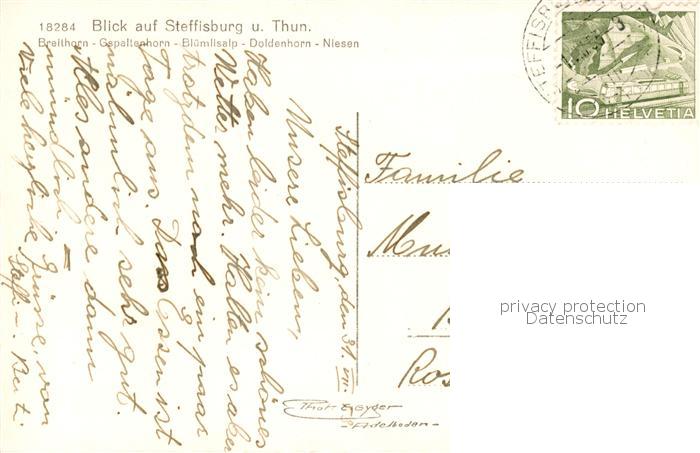 18284 Blick auf Steffisburg u. Thun.
Breithorn - Gspaltenhorn - Blümlisalp - Doldenhorn - Niesen
Steffisburg, den 31. VII.
Unsere Lieben,
Haben leider kein schönes
Wetter mehr. Halten es aber
trotzdem noch ein paar
Tage aus. Das Essen ist
nämlich sehr gut.
Alles andere dann
mündlich =
Viele herzliche Grüsse, von
Steffi u. Berti.
Familie
Mu
Ros
privacy protection
Datenschutz
Phot. E. Gyger
- Adelboden -
STEFFISBURG
10 HELVETIA